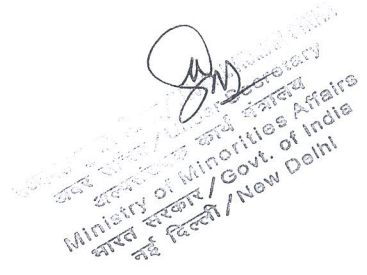 अवर सचिव / Under Secretary
अल्पसंख्यक कार्य मंत्रालय
Ministry of Minorities Affairs
भारत सरकार / Govt. of India
नई दिल्ली / New Delhi